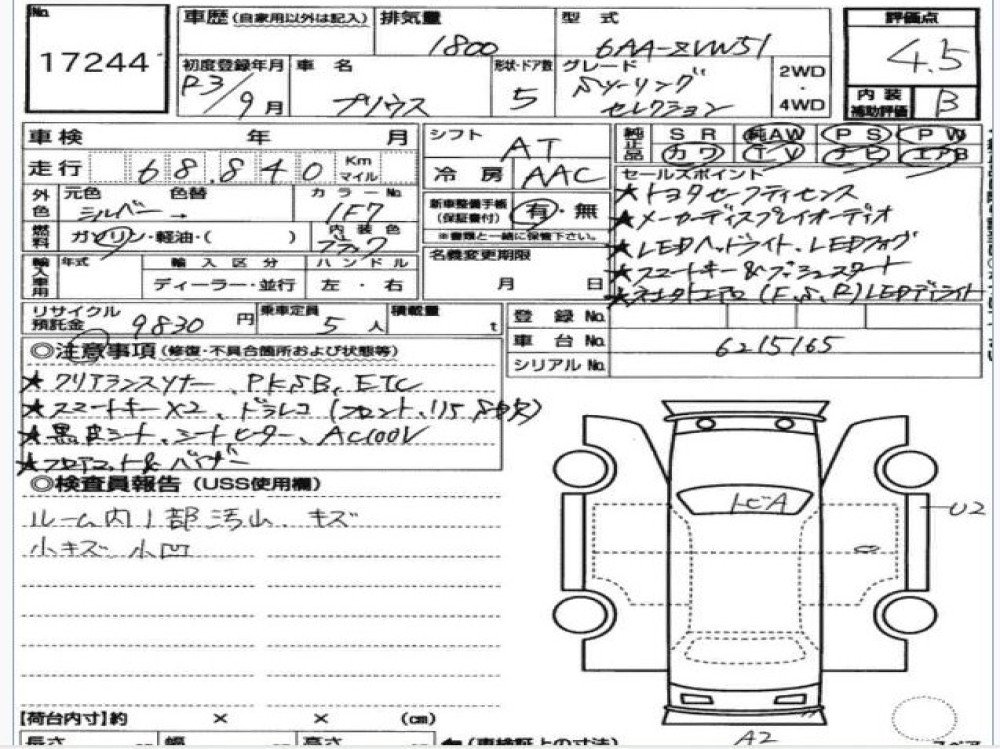 No. 17244
車歴 (自家用以外は記入) 排気量 1800 型式 6AA-ZVW51
評価点 4.5
初度登録年月 R3/9月 車名 プリウス 形状・ドア数 5 グレード Sツーリングセレクション 2WD・4WD
内装補助評価 B
車検 年 月
シフト AT
純正品 SR 純AW PS PW
カワ TV ナビ エアB
走行 68,840 Km マイル
冷房 AAC
セールスポイント
外色 元色 シルバー 色替 → カラーNo. 1F7
新車整備手帳 (保証書付) 有・無
※書類と一緒に保管下さい。
★トヨタセーフティセンス
★メーカーディスプレイオーディオ
★LEDヘッドライト、LEDフォグ
★スマートキー&プッシュスタート
(F,S,R) LEDデイライト
燃料 ガソリン・軽油・( ) 内装色 ブラック
名義変更期限 月 日
輸入車用 年式 輸入区分 ハンドル
ディーラー・並行 左・右
リサイクル預託金 9830円 乗車定員 5人 積載量 t
登録No.
車台No. 6215165
シリアルNo.
◎注意事項 (修復・不具合箇所および状態等)
★クリアランスソナー、PKSB、ETC
★スマートキー×2、ドラレコ(フロント、
★黒皮シート、シートヒーター、AC100V
★フロアマット&バイザー
◎検査員報告 (USS使用欄)
ルーム内1部汚れ、キズ
小キズ 小凹
トビA
U2
A2
【荷台内寸】約 × × (cm)
長さ 幅 高さ (車検証上の寸法)
スペア